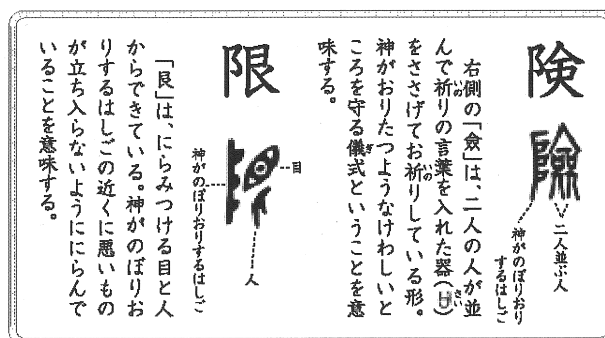 険
二人並ぶ人
神がのぼりおり
するはしご
右側の「僉」は、二人の人が並
んで祈りの言葉を入れた器(𠙵)
をささげてお祈りしている形。
神がおりたつようなけわしいと
ころを守る儀式ということを意
味する。
限
目
人
神がのぼりおりするはしご
「艮」は、にらみつける目と人
からできている。神がのぼりお
りするはしごの近くに悪いもの
が立ち入らないようににらんで
いることを意味する。